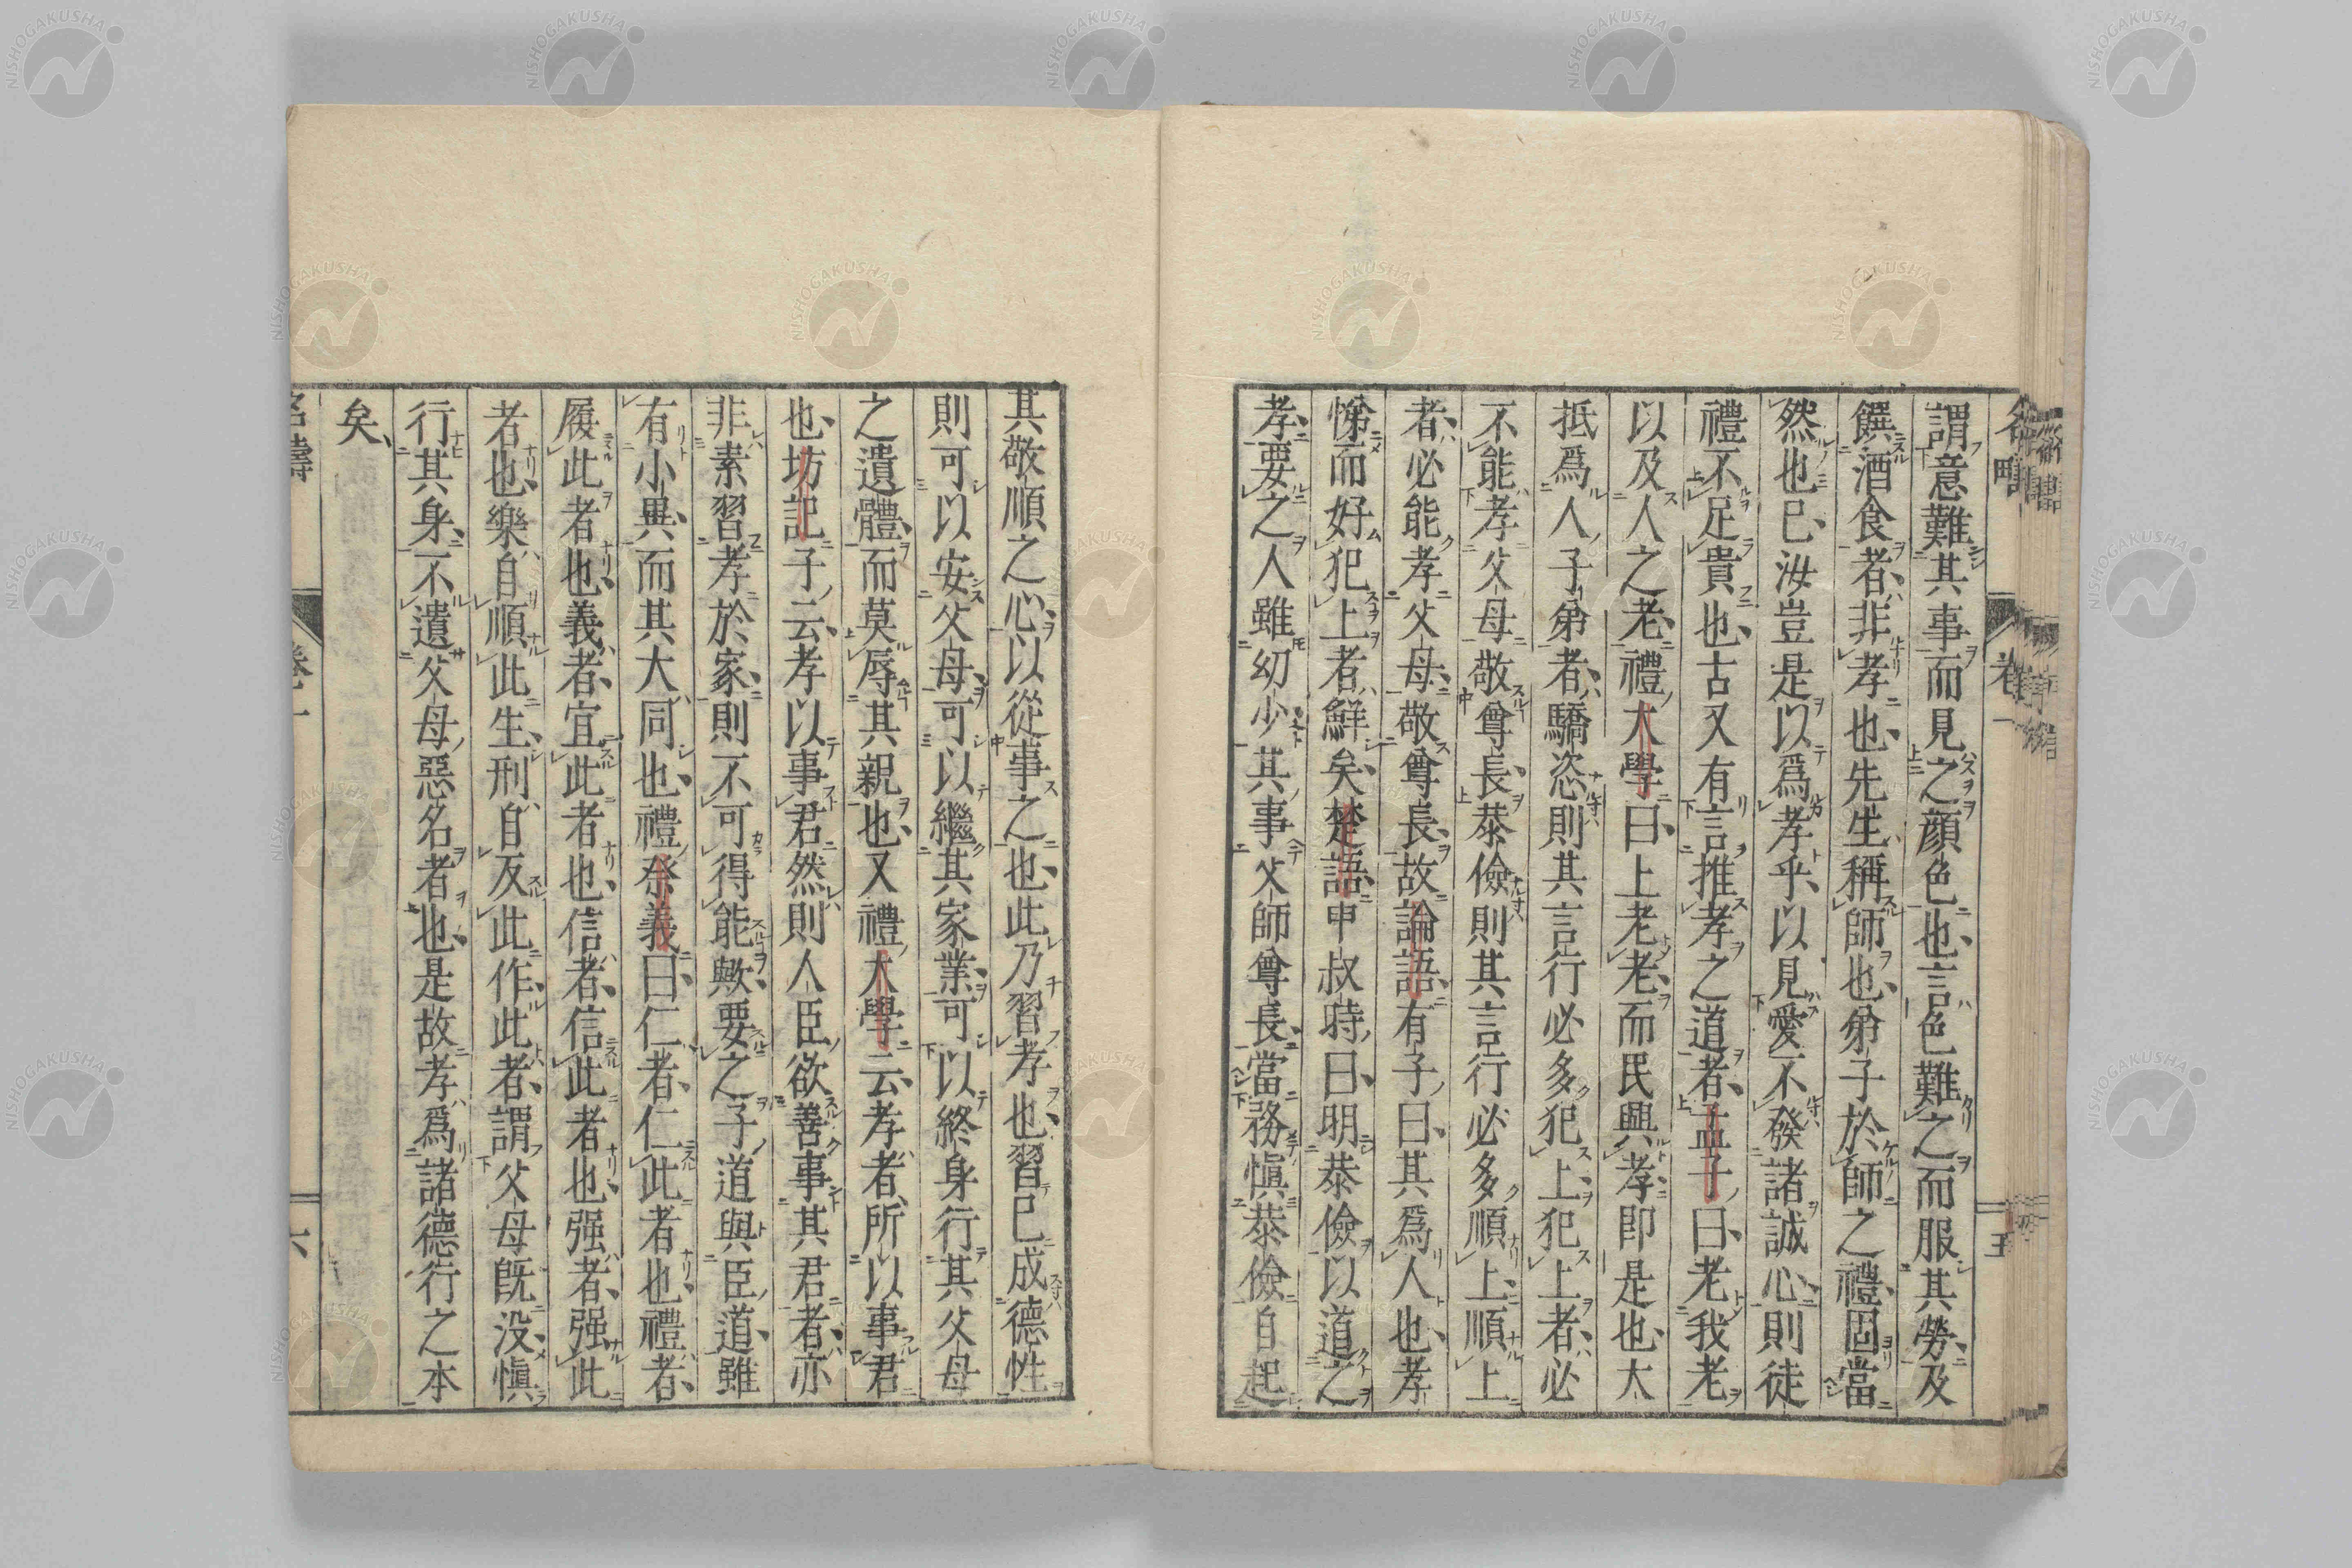 謂意難其事而見之顏色也、言色難之而服其勞、及
饌酒食者、非孝也、先生稱師也、弟子於師之禮、固當
然也已、汝豈是以爲孝乎、以見愛不發諸誠心、則徒
禮不足貴也、古又有言推孝之道者、孟子曰、老我老
以及人之老、禮大學曰、上老老、而民興孝、卽是也、大
抵爲人子弟者、驕恣則其言行必多犯上、犯上者、必
不能孝父母敬尊長、恭儉則其言行必多順上、順上
者、必能孝父母、敬尊長、故論語、有子曰、其爲人也、孝
悌而好犯上者、鮮矣、楚語、申叔時曰、明恭儉以道之
孝、要之人雖幼少、其事父師尊長、當務愼恭儉自起
其敬順之心、以從事之也、此乃習孝也、習已成德性
則可以安父母、可以繼其家業、可以終身行其父母
之遺體、而莫辱其親也、又禮大學云、孝者、所以事君
也、坊記子云、孝以事君、然則人臣欲善事其君者、亦
非素習孝於家、則不可得能歟、要之子道與臣道、雖
有小異、而其大同也、禮祭義曰、仁者、仁此者也、禮者、
履此者也、義者、宜此者也、信者、信此者也、强者、强此
者也、樂自順此生、刑自反此作、此者、謂父母旣沒、愼
行其身、不遺父母惡名者也、是故孝爲諸德行之本
矣、
名疇
卷一
六
NISHOGAKUSHA